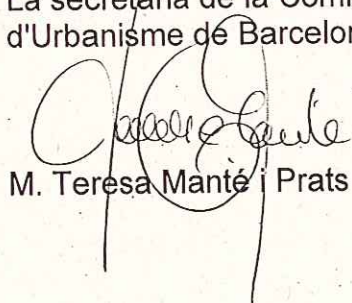 La secretària de la Comi
d'Urbanisme de Barcelon
M. Teresa Manté i Prats